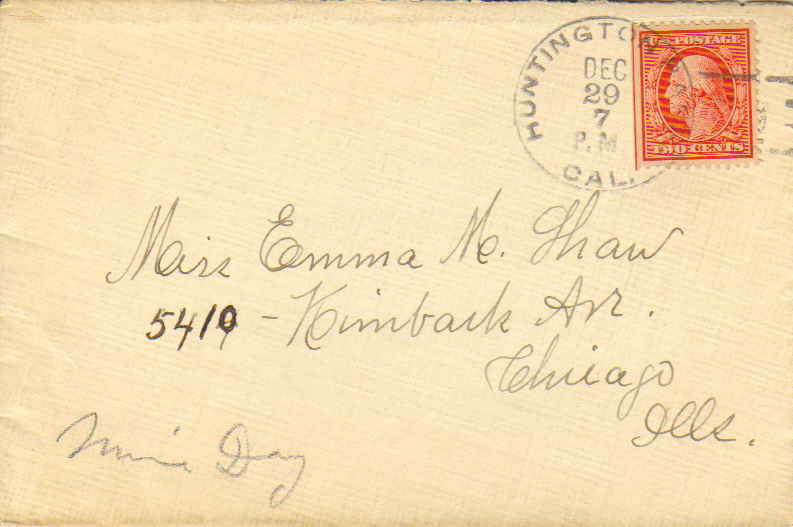 HUNTINGTON
DEC
29
7
P.M
CAL.
U.S. POSTAGE
TWO CENTS
Miss Emma M. Shaw
5410 - Kimbark Ave.
Chicago
Ills.
Day